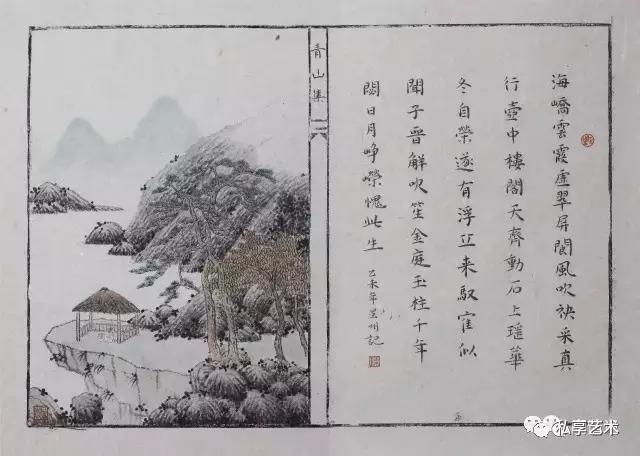 海嶠雲霞虛翠屏閬風吹袂采真
行壺中樓閣天齊動石上瑤華
冬自榮遂有浮丘来馭寉似
聞子晉解吹笙金庭玉柱千年
閟日月崢嶸愧此生
乙未年
記
青山集
私享艺米